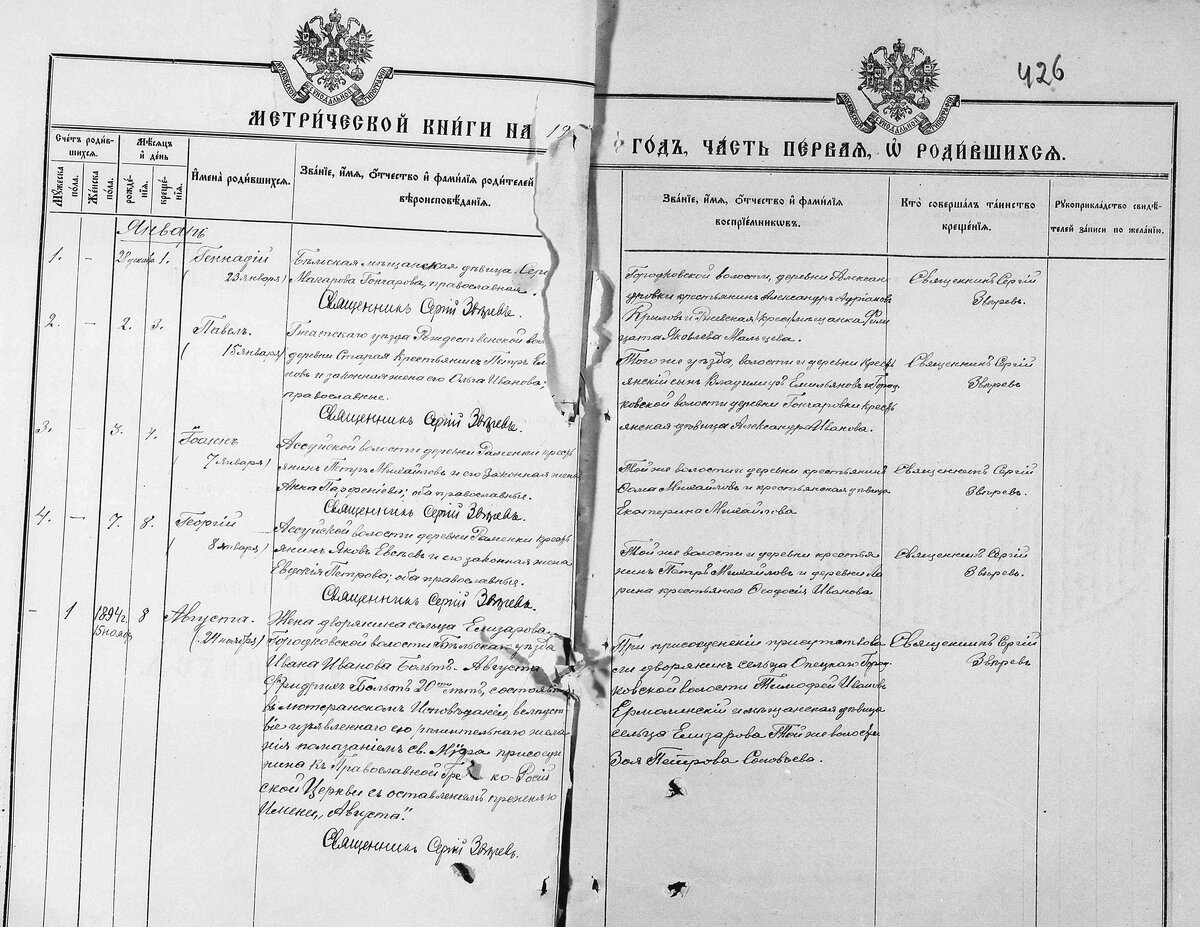 МОСКОВСКОЙ СѴНОДАЛЬНОЙ ТИПОГРАФІИ
МОСКОВСКОЙ СѴНОДАЛЬНОЙ ТИПОГРАФІИ
426
МЕТРИ́ЧЕСКОЙ КНИ́ГИ НА 19
ГОДЪ, ЧА́СТЬ ПЕ́РВАЯ, Ѡ РОДИ́ВШИХСЯ.
Сче́тъ роди́вшихся.
Му́жеска по́ла.
Же́нска по́ла.
Мѣ́сяцъ и҆ де́нь
рожде́нїѧ.
креще́нїѧ.
И҆мена̀ роди́вшихсѧ.
Зва́нїе, и҆́мѧ, ѻ҆́тчество и҆ фами́лїѧ роди́телей
вѣроисповѣ́данїѧ.
Зва́нїе, и҆́мѧ, ѻ҆́тчество и҆ фами́лїѧ
воспрїе́мникѡвъ.
Кто̀ соверша́лъ та́инство
креще́нїѧ.
Рꙋкоприкла́дство свидѣ́
телей за́писи по жела́нїю.
Январь
1. - декабр 1. Геннадій
(23 января)
Бѣльская мѣщанская дѣвица
Макарова Гончарова, православная.
Священникъ Сергій Звѣревъ.
Городковской волости, деревни Алексан
дровки крестьянинъ Александръ Адріановъ
Крыловъ и Ржевская мѣщанка
Яковлева Мальцева.
Священникъ Сергій
Звѣревъ.
2. - 2. 3. Павелъ.
(15 января)
Гжатскаго уѣзда Рождественской вол
деревни Старая крестьянинъ Петръ Емел
новъ и законная жена его Ольга Иванова;
православные.
Священникъ Сергій Звѣревъ.
Того же уѣзда, волости и деревни кресть
янскій сынъ Владиміръ Емильяновъ и Город
ковской волости деревни Гончаровки кресть
янская дѣвица Александра Иванова.
Священникъ Сергій
Звѣревъ.
3. - 3. 4. Іоаннъ
(7 января)
волости деревни Раменки кресть
янинъ Петръ Михайловъ и его законная жена
Анна Парфеніева; оба православные.
Священникъ Сергій Звѣревъ.
Той же волости и деревни крестьянинъ
Ѳома Михайловъ и крестьянская дѣвица
Екатерина Михайлова
Священникъ Сергій
Звѣревъ.
4. - 7. 8. Георгій
(8 января)
волости деревни Раменки кресть
янинъ Яковъ Евсѣевъ и его законная жена
Евдокія Петрова; оба православные.
Священникъ Сергій Звѣревъ.
Той же волости и деревни крестья
нинъ Петръ Михайловъ и деревни Ла
рина крестьянка Ѳеодосія Иванова
Священникъ Сергій
Звѣревъ.
- 1 1894 г. 15 нояб. 8 Августа.
(24 ноября)
Жена дворянина сельца Елизарова,
Городковской волости Бѣльскаго уѣзда
Ивана Иванова Больтъ - Августа
Фридрихъ Больтъ 20ти лѣтъ, состоявш
въ лютеранскомъ исповѣданіи, вслѣдст
віе изъявленнаго ею рѣшительнаго жела
нія помазаніемъ св. Мѵра присоеди
нена къ Православной Греко-Россій
ской Церкви съ оставленіемъ прежняго
имени „Августа".
Священникъ Сергій Звѣревъ.
При присоединеніи присутствова
ли дворянинъ сельца Опецкаго Город
ковской волости Тимофей Ивановъ
Ермолинскій и мѣщанская дѣвица
сельца Елизарова той же волости
Зоя Петрова Соловьева.
Священникъ Сергій
Звѣревъ